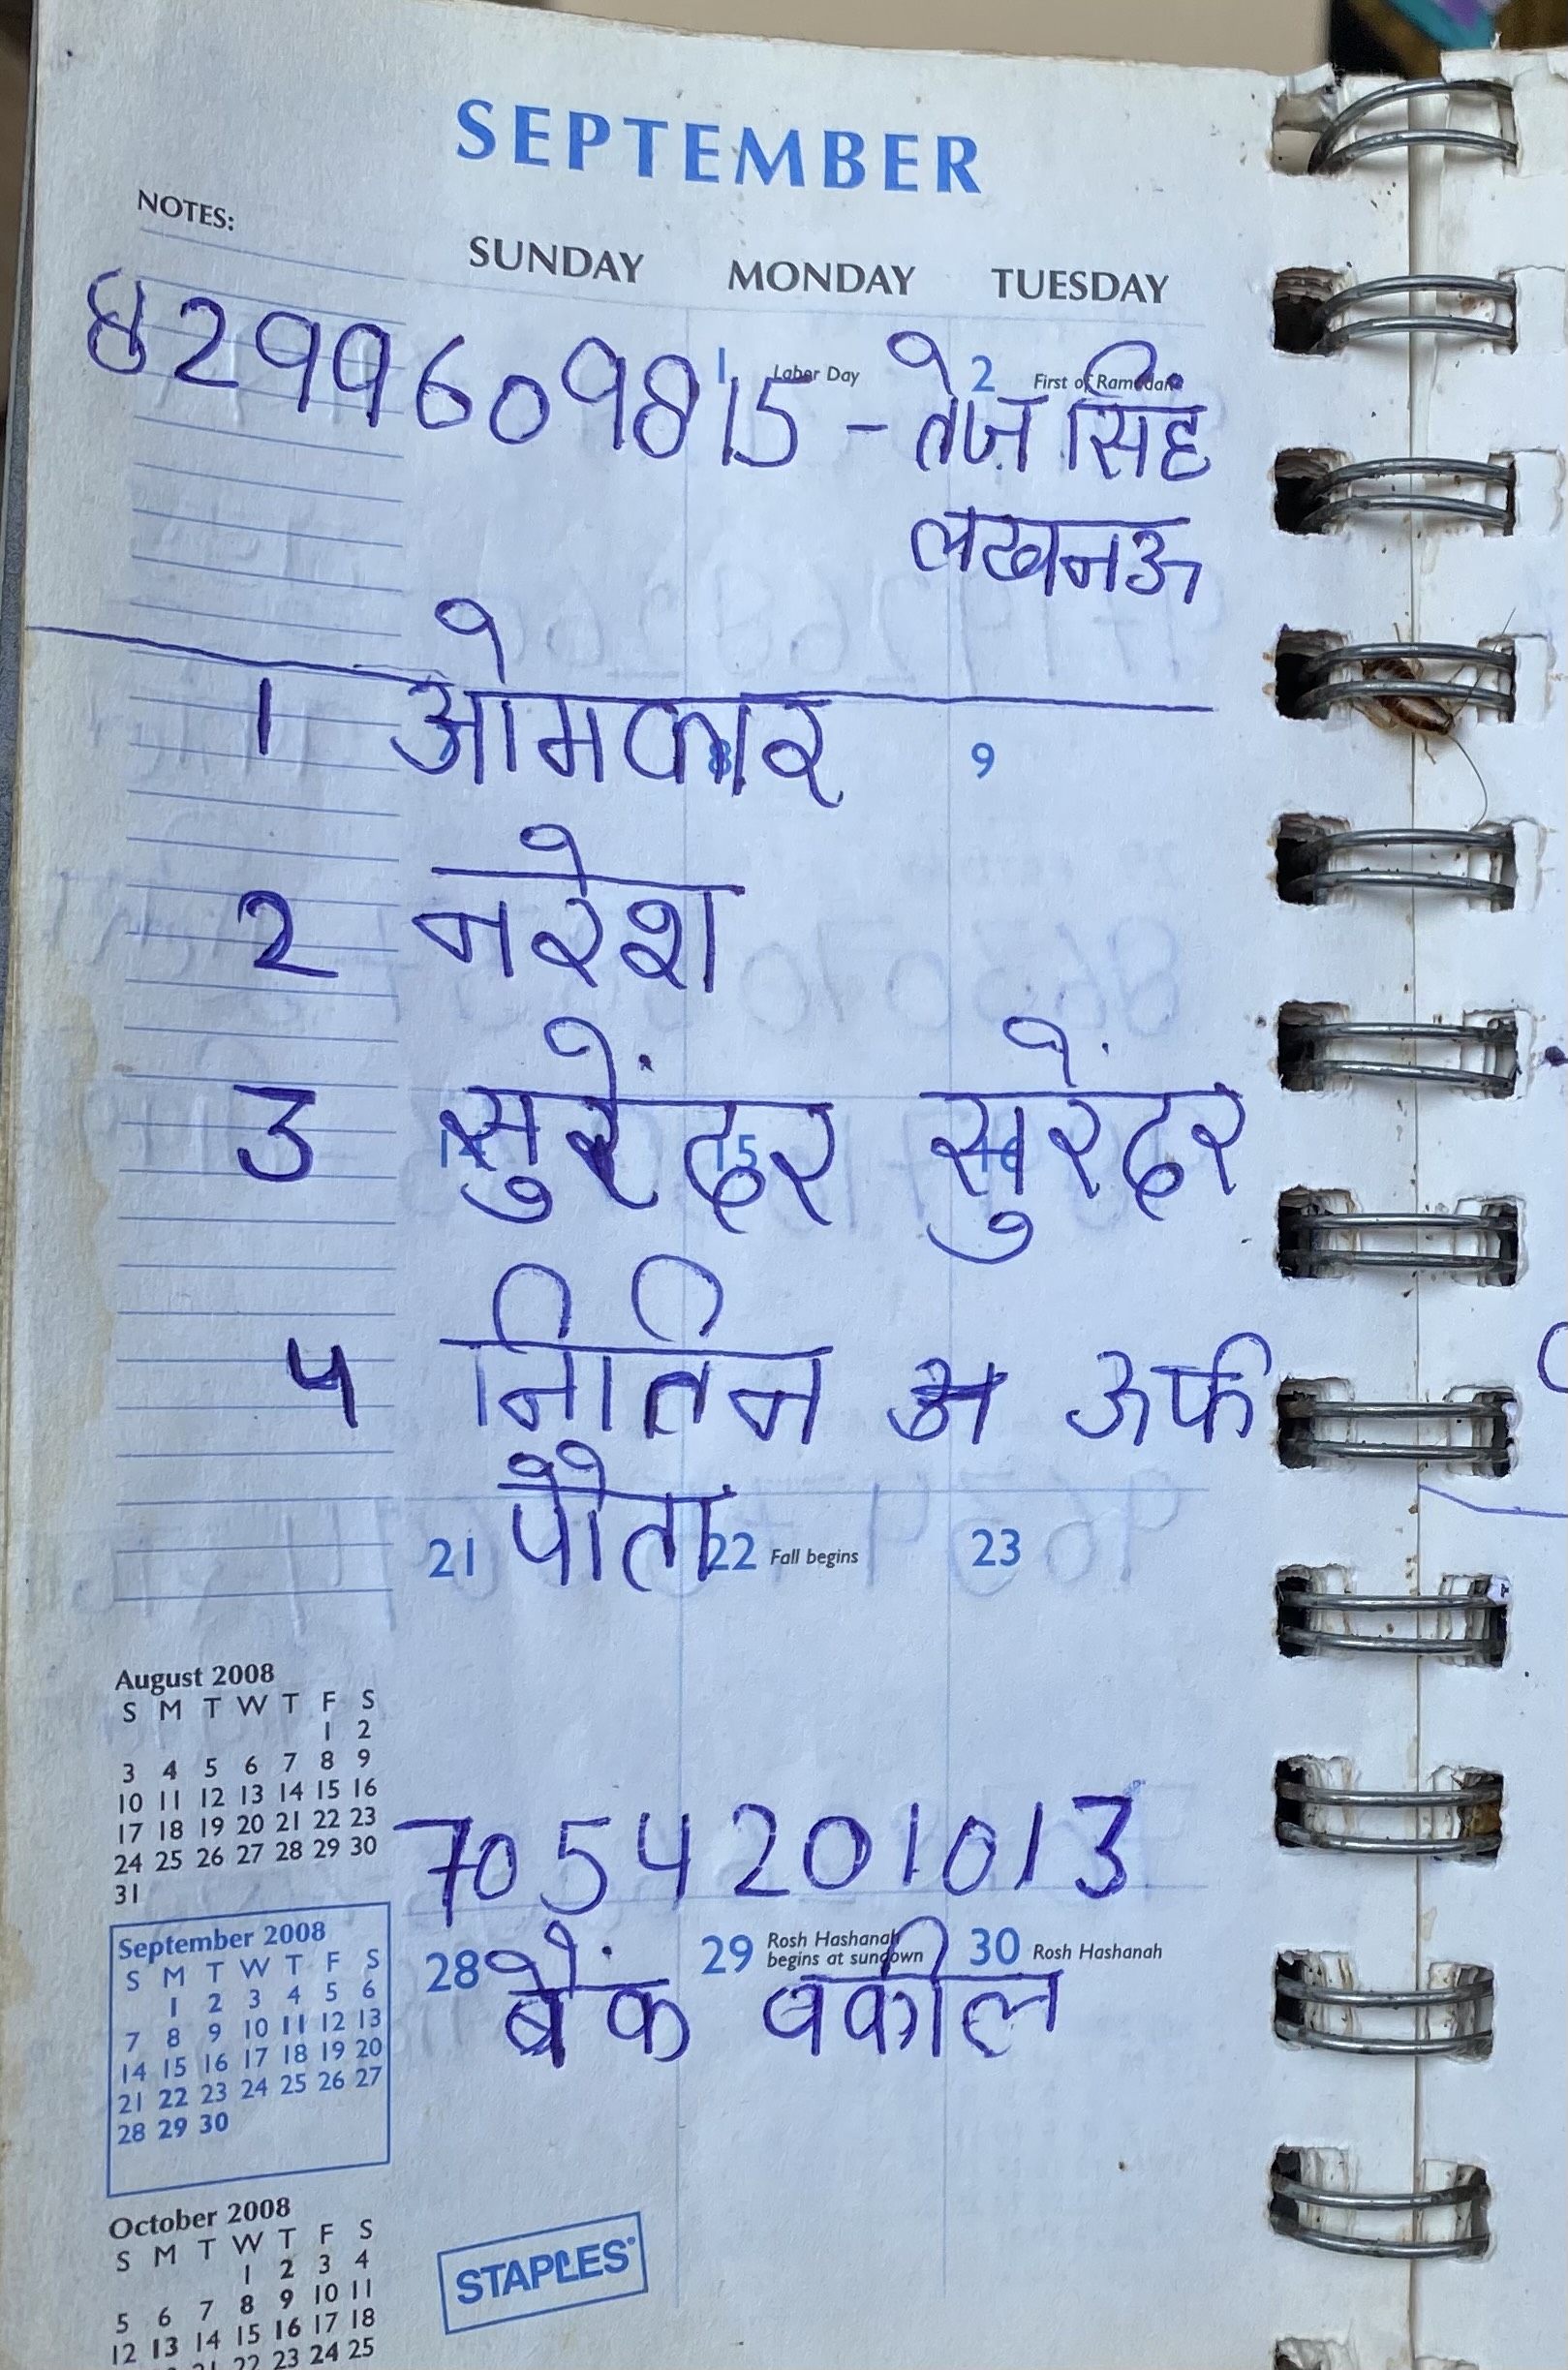 SEPTEMBER
NOTES:
SUNDAY MONDAY TUESDAY
1 Labor Day 2 First of Ramadan
8299609815 - तेज सिंह
लखनऊ
1 ओमकार
8 9
2 नरेश
3 सुरेंदर सुरेंदर
14 15 16
4 नितिन अ ऊर्फ
पौता
21 22 Fall begins 23
7054201013
28 29 Rosh Hashanah begins at sundown 30 Rosh Hashanah
बैंक वकील
August 2008
S M T W T F S
1 2
3 4 5 6 7 8 9
10 11 12 13 14 15 16
17 18 19 20 21 22 23
24 25 26 27 28 29 30
31
September 2008
S M T W T F S
1 2 3 4 5 6
7 8 9 10 11 12 13
14 15 16 17 18 19 20
21 22 23 24 25 26 27
28 29 30
October 2008
S M T W T F S
1 2 3 4
5 6 7 8 9 10 11
12 13 14 15 16 17 18
21 22 23 24 25
STAPLES